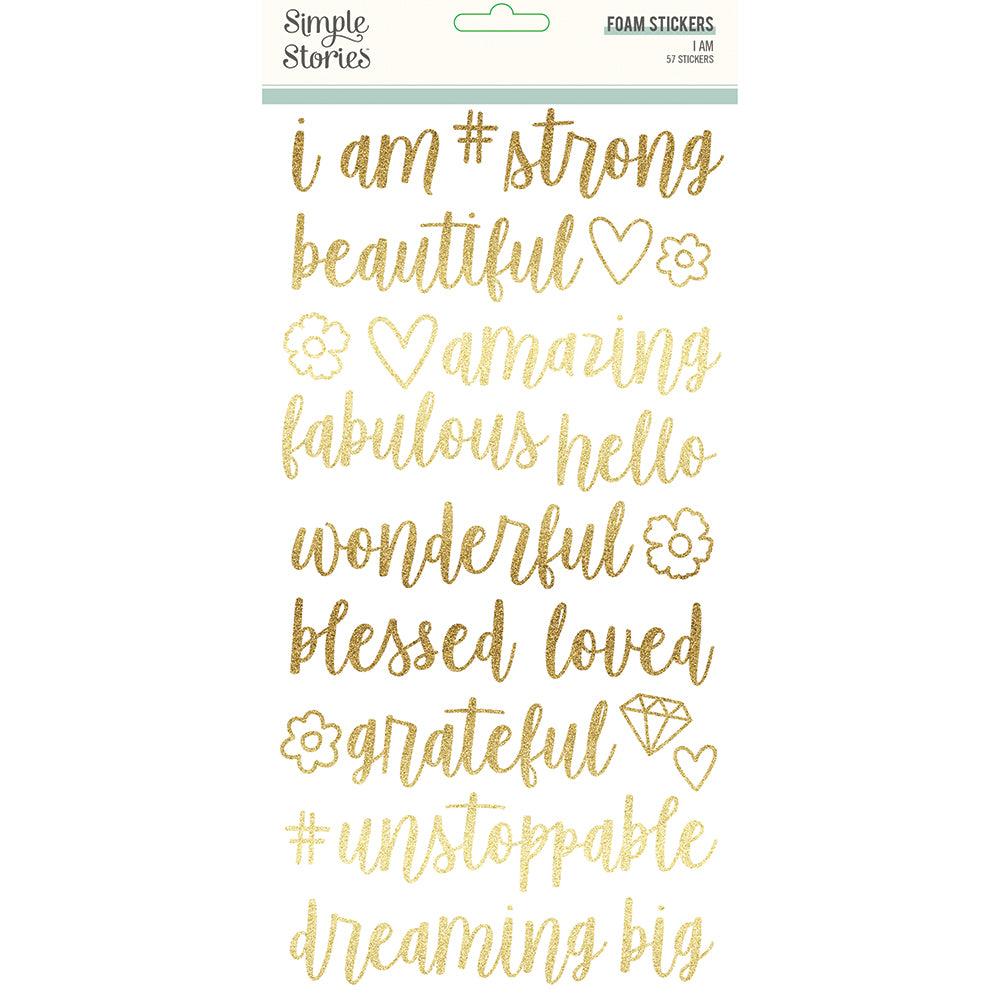 Simple
Stories
FOAM STICKERS
I AM
57 STICKERS
i am #strong
beautiful
amazing
fabulous hello
wonderful
blessed loved
grateful
#unstoppable
dreaming big